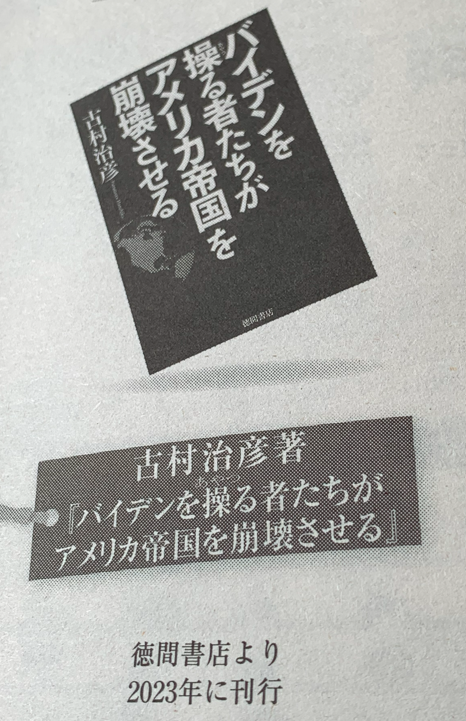 バイデンを
操る者たちが
アメリカ帝国を
崩壊させる
古村治彦
徳間書店
古村治彦著
あやつ
『バイデンを操る者たちが
アメリカ帝国を崩壊させる』
徳間書店より
2023年に刊行